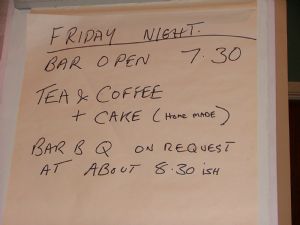 FRIDAY NIGHT.
BAR OPEN 7.30
TEA & COFFEE
+ CAKE (HOME MADE)
BAR B Q ON REQUEST
AT ABOUT 8.30 ISH